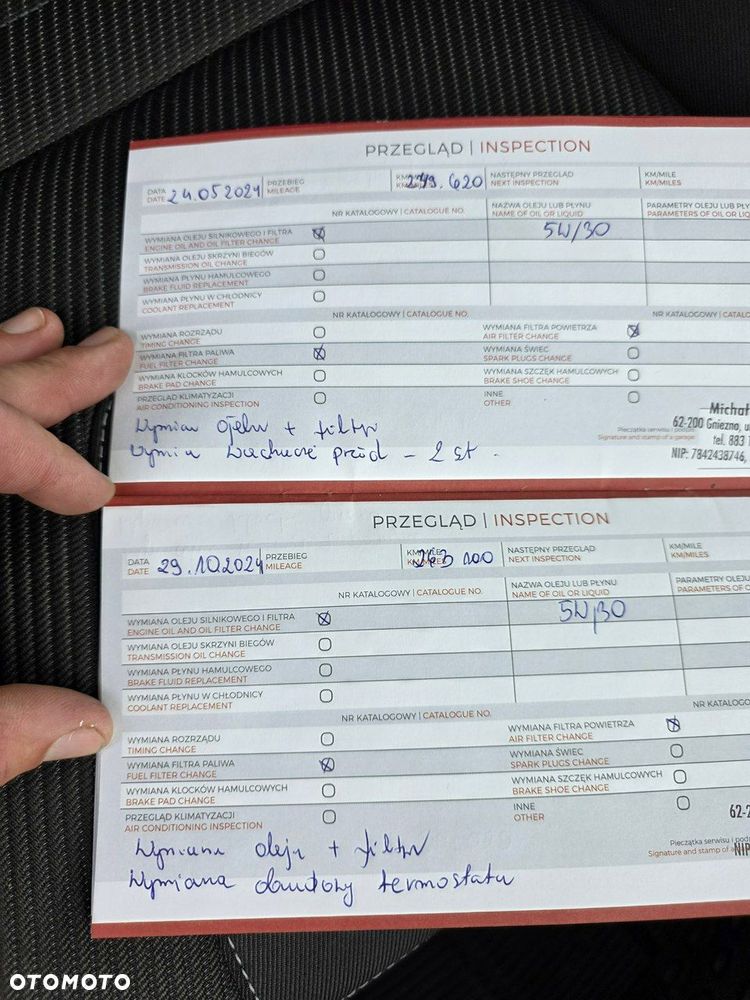 PRZEGLĄD | INSPECTION
DATA 24.05.2024 PRZEBIEG KM/MILE NASTĘPNY PRZEGLĄD KM/MILE
DATE MILEAGE .620 NEXT INSPECTION KM/MILES
NR KATALOGOWY | CATALOGUE NO. NAZWA OLEJU LUB PŁYNU PARAMETRY OLEJU LUB
NAME OF OIL OR LIQUID PARAMETERS OF OIL OR
WYMIANA OLEJU SILNIKOWEGO I FILTRA 5W/30
ENGINE OIL AND OIL FILTER CHANGE
WYMIANA OLEJU SKRZYNI BIEGÓW
TRANSMISSION OIL CHANGE
WYMIANA PŁYNU HAMULCOWEGO
BRAKE FLUID REPLACEMENT
WYMIANA PŁYNU W CHŁODNICY
COOLANT REPLACEMENT
NR KATALOGOWY | CATALOGUE NO. NR KATALOGOWY
WYMIANA ROZRZĄDU WYMIANA FILTRA POWIETRZA
TIMING CHANGE AIR FILTER CHANGE
WYMIANA FILTRA PALIWA WYMIANA ŚWIEC
FUEL FILTER CHANGE SPARK PLUGS CHANGE
WYMIANA KLOCKÓW HAMULCOWYCH WYMIANA SZCZĘK HAMULCOWYCH
BRAKE PAD CHANGE BRAKE SHOE CHANGE
PRZEGLĄD KLIMATYZACJI INNE
AIR CONDITIONING INSPECTION OTHER
Michał
Pieczątka serwisu i podpis 62-200 Gniezno,
Signature and stamp of a garage tel. 883
NIP: 7842438746,
+ filtry
przód - 2 st.
PRZEGLĄD | INSPECTION
DATA 29.10.2024 PRZEBIEG KM/MILE NASTĘPNY PRZEGLĄD KM/MILE
DATE MILEAGE 100 NEXT INSPECTION KM/MILES
NR KATALOGOWY | CATALOGUE NO. NAZWA OLEJU LUB PŁYNU PARAMETRY OLEJU
NAME OF OIL OR LIQUID PARAMETERS OF
WYMIANA OLEJU SILNIKOWEGO I FILTRA 5W/30
ENGINE OIL AND OIL FILTER CHANGE
WYMIANA OLEJU SKRZYNI BIEGÓW
TRANSMISSION OIL CHANGE
WYMIANA PŁYNU HAMULCOWEGO
BRAKE FLUID REPLACEMENT
WYMIANA PŁYNU W CHŁODNICY
COOLANT REPLACEMENT
NR KATALOGOWY | CATALOGUE NO. NR KATALOGO
WYMIANA ROZRZĄDU WYMIANA FILTRA POWIETRZA
TIMING CHANGE AIR FILTER CHANGE
WYMIANA FILTRA PALIWA WYMIANA ŚWIEC
FUEL FILTER CHANGE SPARK PLUGS CHANGE
WYMIANA KLOCKÓW HAMULCOWYCH WYMIANA SZCZĘK HAMULCOWYCH
BRAKE PAD CHANGE BRAKE SHOE CHANGE
PRZEGLĄD KLIMATYZACJI INNE
AIR CONDITIONING INSPECTION OTHER
62-2
Pieczątka serwisu i
Signature and stamp of a NIP
Wymiana oleju + filtry
Wymiana obudowy termostatu
OTOMOTO